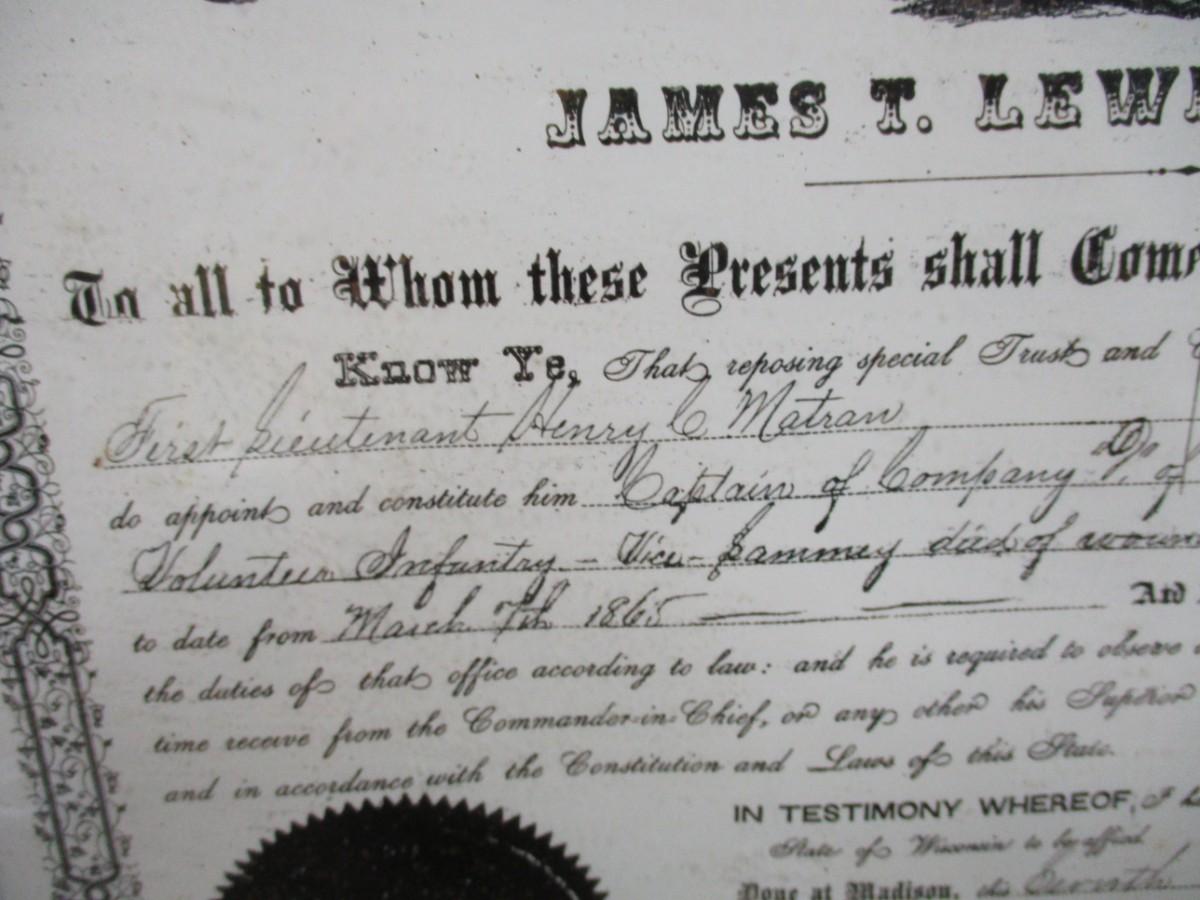 JAMES T. LEWI
To all to Whom these Presents shall Come
Know Ye, That, reposing special Trust and
First Lieutenant Henry C Matran
do appoint and constitute him Captain of Company "D" of
Volunteer Infantry - Vice - Sammey died of woun
to date from March 7th 1865 And
the duties of that office according to law: and he is required to observe
time receive from the Commander-in-Chief, or any other his Superior
and in accordance with the Constitution and Laws of this State.
IN TESTIMONY WHEREOF, I
State of Wisconsin to be affixed.
Done at Madison, this Seventh